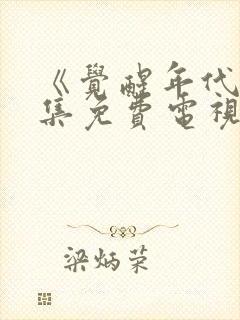 《覺醒年代
集免費電視
梁炳榮